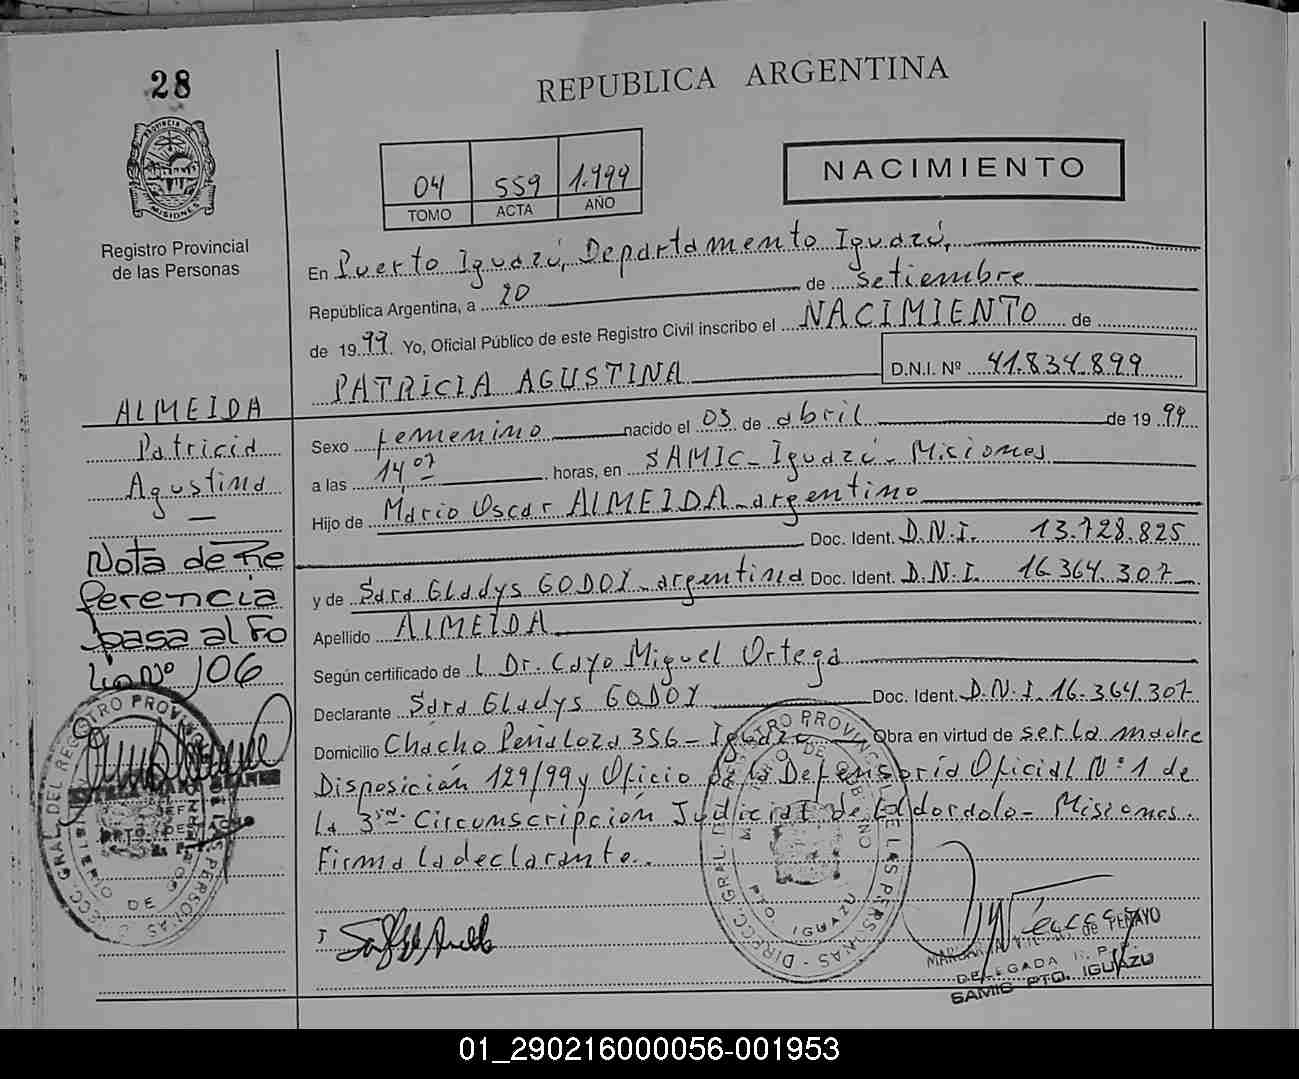 28
PROVINCIA DE
MISIONES
Registro Provincial
de las Personas
ALMEIDA
Patricia
Agustina
Nota de Re
ferencia
pasa al Fo
lio Nº 106
DIRECC. GRAL. DEL REGISTRO PROVINCIAL DE LAS PERSONAS
REPUBLICA ARGENTINA
NACIMIENTO
04 559 1.999
TOMO ACTA AÑO
En Puerto Iguazú, Departamento Iguazú,
República Argentina, a 20 de setiembre
de 1999 Yo, Oficial Público de este Registro Civil inscribo el NACIMIENTO de
PATRICIA AGUSTINA D.N.I. Nº 41.834.899
Sexo femenino nacido el 03 de abril de 1999
a las 14,07 horas, en SAMIC - Iguazú - Misiones
Hijo de Mario Oscar ALMEIDA - argentino
Doc. Ident. D.N.I. 13.728.825
y de Sara Gladys GODOY - argentina Doc. Ident. D.N.I. 16.364.307
Apellido ALMEIDA
Según certificado de l. Dr. Cayo Miguel Ortega
Declarante Sara Gladys GODOY Doc. Ident. D.N.I. 16.364.307
Domicilio Chacho Peñaloza 356 - Iguazú Obra en virtud de ser la madre
Disposición 129/99 y Oficio de la Defensoría Oficial N° 1 de
la 3ra Circunscripción Judicial de Eldordolo - Misiones.
Firma la declarante.
DIRECC. GRAL. DEL REGISTRO PROVINCIAL DE LAS PERSONAS
PTO IGUAZU
de PENAYO
DELEGADA R. P.
SAMIC PTO. IGUAZU
01_290216000056-001953